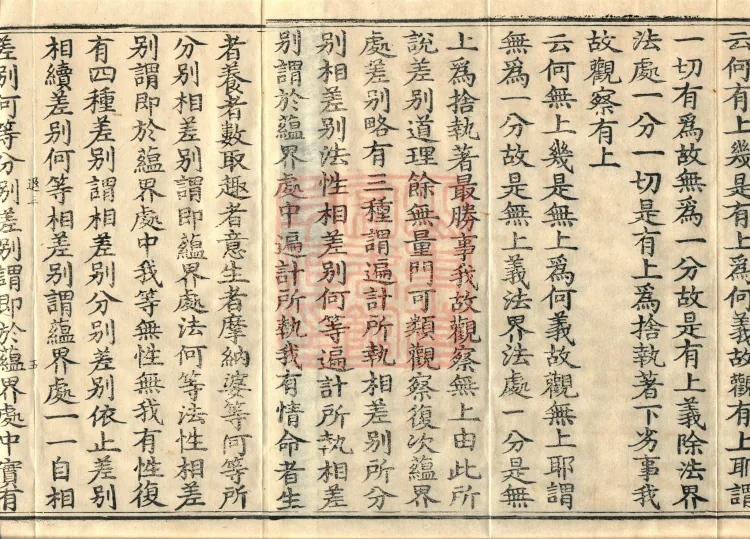 云何有上幾是有上爲何義故觀有上耶謂
一切有爲故無爲一分故是有上義除法界
法處一分一切是有上爲捨執著下劣事我
故觀察有上
云何無上幾是無上爲何義故觀無上耶謂
無爲一分故是無上義法界法處一分是無
上爲捨執著最勝事我故觀察無上由此所
說差別道理餘無量門可類觀察復次蘊界
處差別略有三種謂遍計所執相差別所分
別相差別法性相差別何等遍計所執相差
別謂於蘊界處中遍計所執我有情命者生
者養者數取趣者意生者摩納婆等何等所
分別相差別謂即蘊界處法何等法性相差
別謂即於蘊界處中我等無性無我有性復
有四種差別謂相差別分別差別依止差別
相續差別何等相差別謂蘊界處一一自相
差別何等分別差別謂即於蘊界處中實有